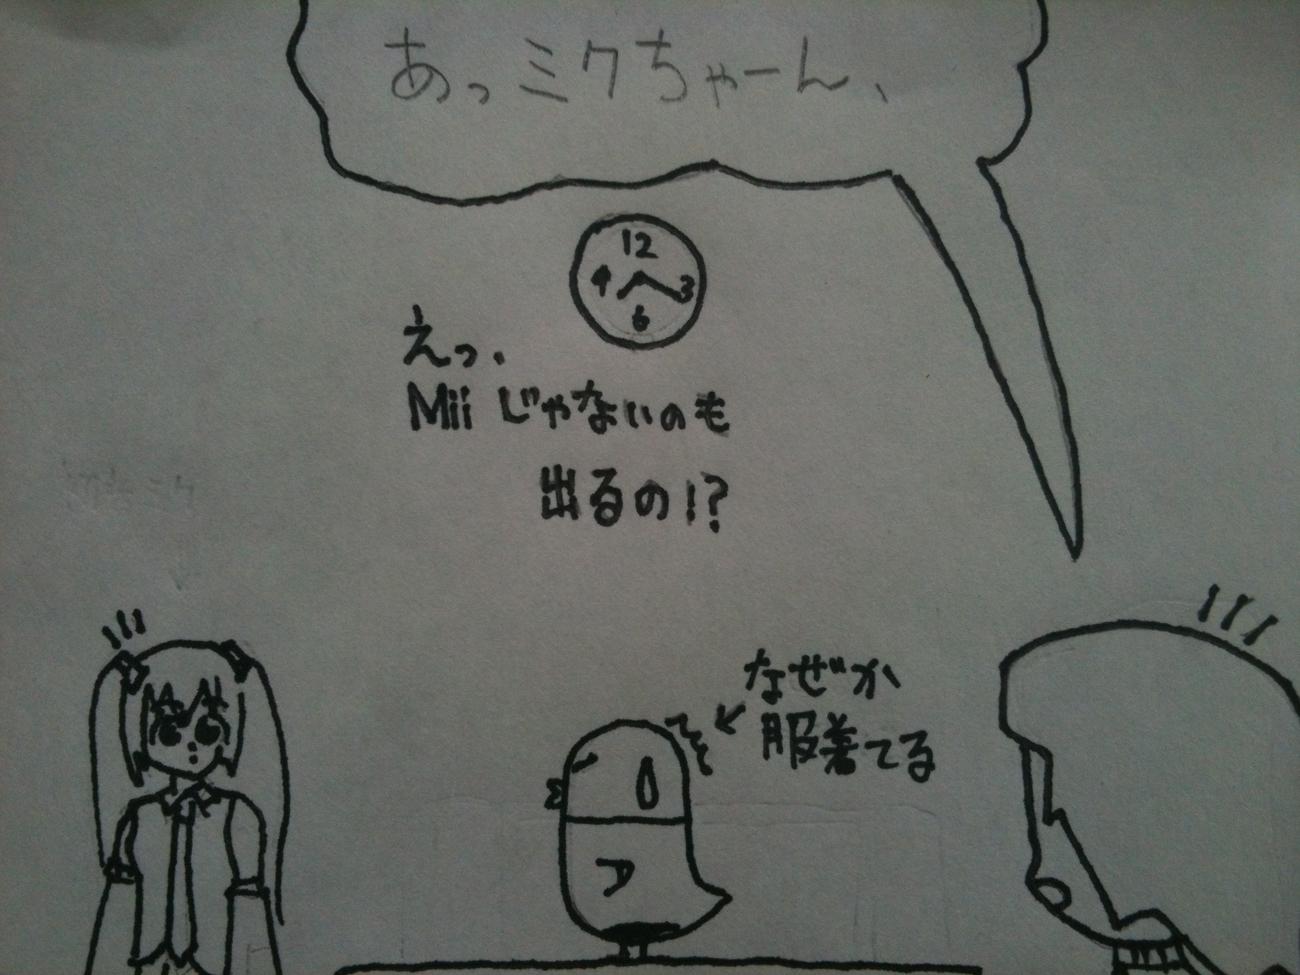 あっミクちゃーん、
12
9 3
6
えっ、
Miiじゃないのも
出るの!?
なぜか
服着てる